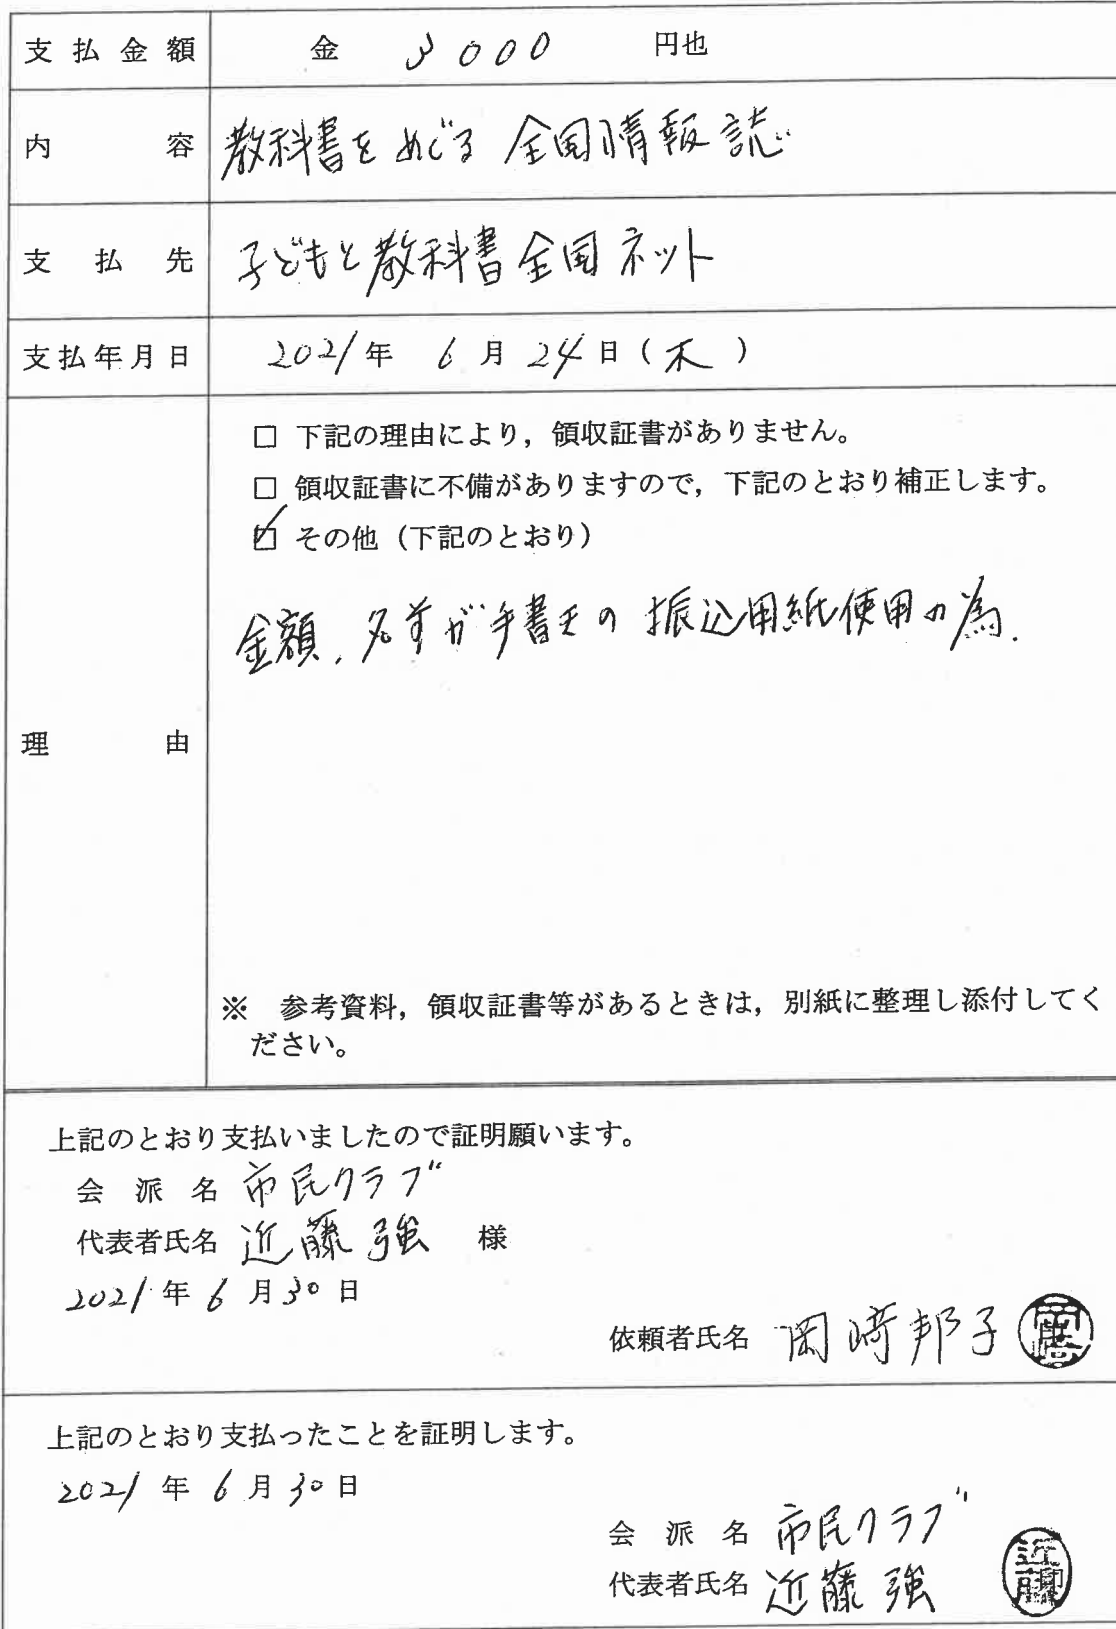 支払金額 金 3000 円也
内容 教科書をめぐる全国情報誌
支払先 子どもと教科書全国ネット
支払年月日 2021年 6月24日(木)
□ 下記の理由により，領収証書がありません。
□ 領収証書に不備がありますので，下記のとおり補正します。
☑ その他（下記のとおり）
金額、名前が手書きの振込用紙使用の為.
理由
※ 参考資料，領収証書等があるときは，別紙に整理し添付してく
ださい。
上記のとおり支払いましたので証明願います。
会派名 市民クラブ
代表者氏名 近藤強 様
2021年6月30日
依頼者氏名 岡﨑邦子 岡崎
上記のとおり支払ったことを証明します。
2021年6月30日
会派名 市民クラブ
代表者氏名 近藤強 近藤印